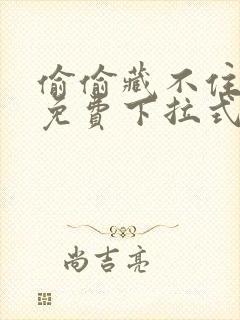 偷偷藏不住
免費下拉式
尚吉亮